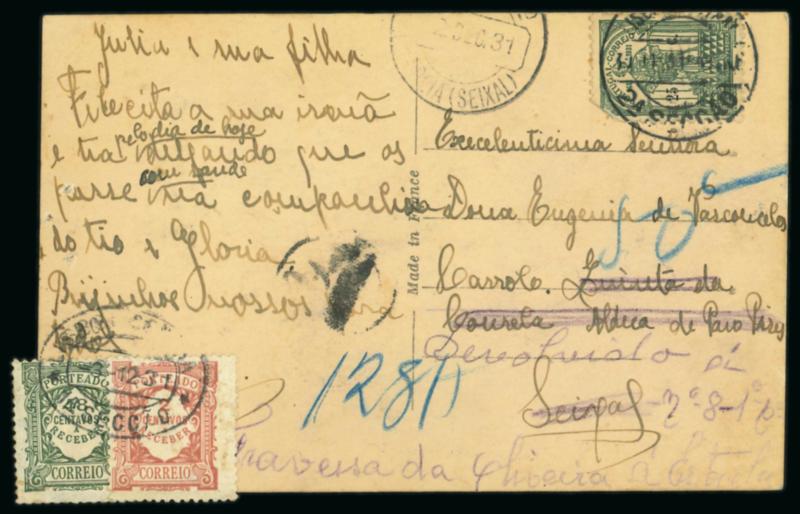 Julia e sua filha
Felecita a sua irmã
pelo dia de hoje
e tia desejando que os
com saude
passe na companhia
do tio e Gloria
Beijinhos nossos para
2 DEZ.31
(SEIXAL)
CORREIO
25
2A SECÇÃO
Excelenticima Senhora
50
Dona Eugenia de Vasconcelos
Made in France
Carrolo. Quinta da
Courela Aldeia de Paio Pires
Devolvido á
128A
Seixal - 2º-8-1º
Travessa da Oliveira á Estrela
PORTEADO
CENTAVOS
RECEBER
CORREIO
PORTEADO
8
CENTAVOS
RECEBER
CORREIO